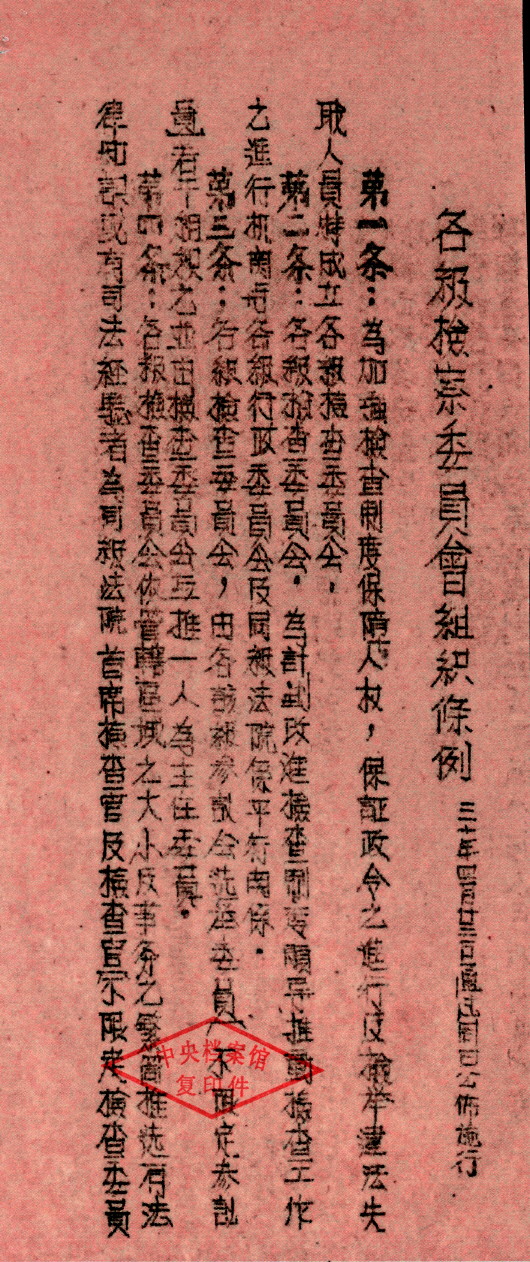 各級檢察委員會組織條例
三十年四月廿三日通過同日公佈施行
第一条：為加强檢查制度保障人权，保証政令之進行及檢举違法失
职人員特成立各級檢查委員会，
第二条：各級檢查委員会，為計劃改進檢查制度領导推動檢查工作
之進行机関与各級行政委員会及同級法院保平行関係。
第三条：各級檢查委員会，由各該級参議会选举委員（不限定参議
員）若干組織之並由檢查委員会互推一人為主任委員。
第四条：各級檢查委員会依管轄區域之大小及事务之繁簡推选有法
律知識或有司法經驗者為同級法院首席檢查官及檢查官（不限定檢查委員
中央档案馆
复印件